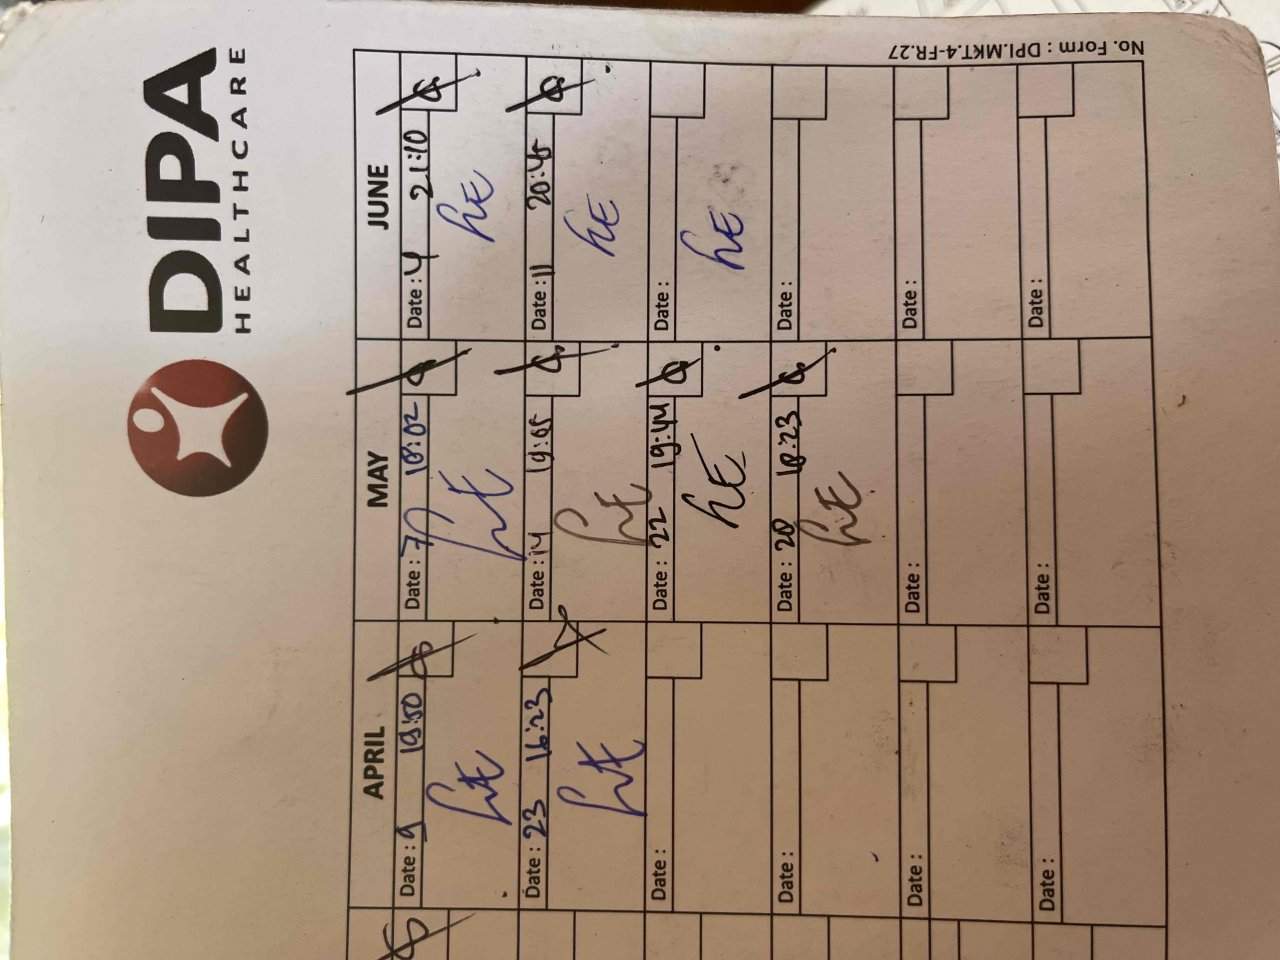 DIPA
HEALTHCARE
APRIL MAY JUNE
Date : 9 19:50
Date : 7 18:02
Date : 4 21:10
hE
hE
hE
Date : 23 16:23
Date : 14 19:05
Date : 11 20:45
hE
hE
hE
Date :
Date : 22 19:44
Date :
hE
hE
Date :
Date : 28 18:23
Date :
hE
Date :
Date :
Date :
Date :
Date :
Date :
No. Form : DPI.MKT.4-FR.27